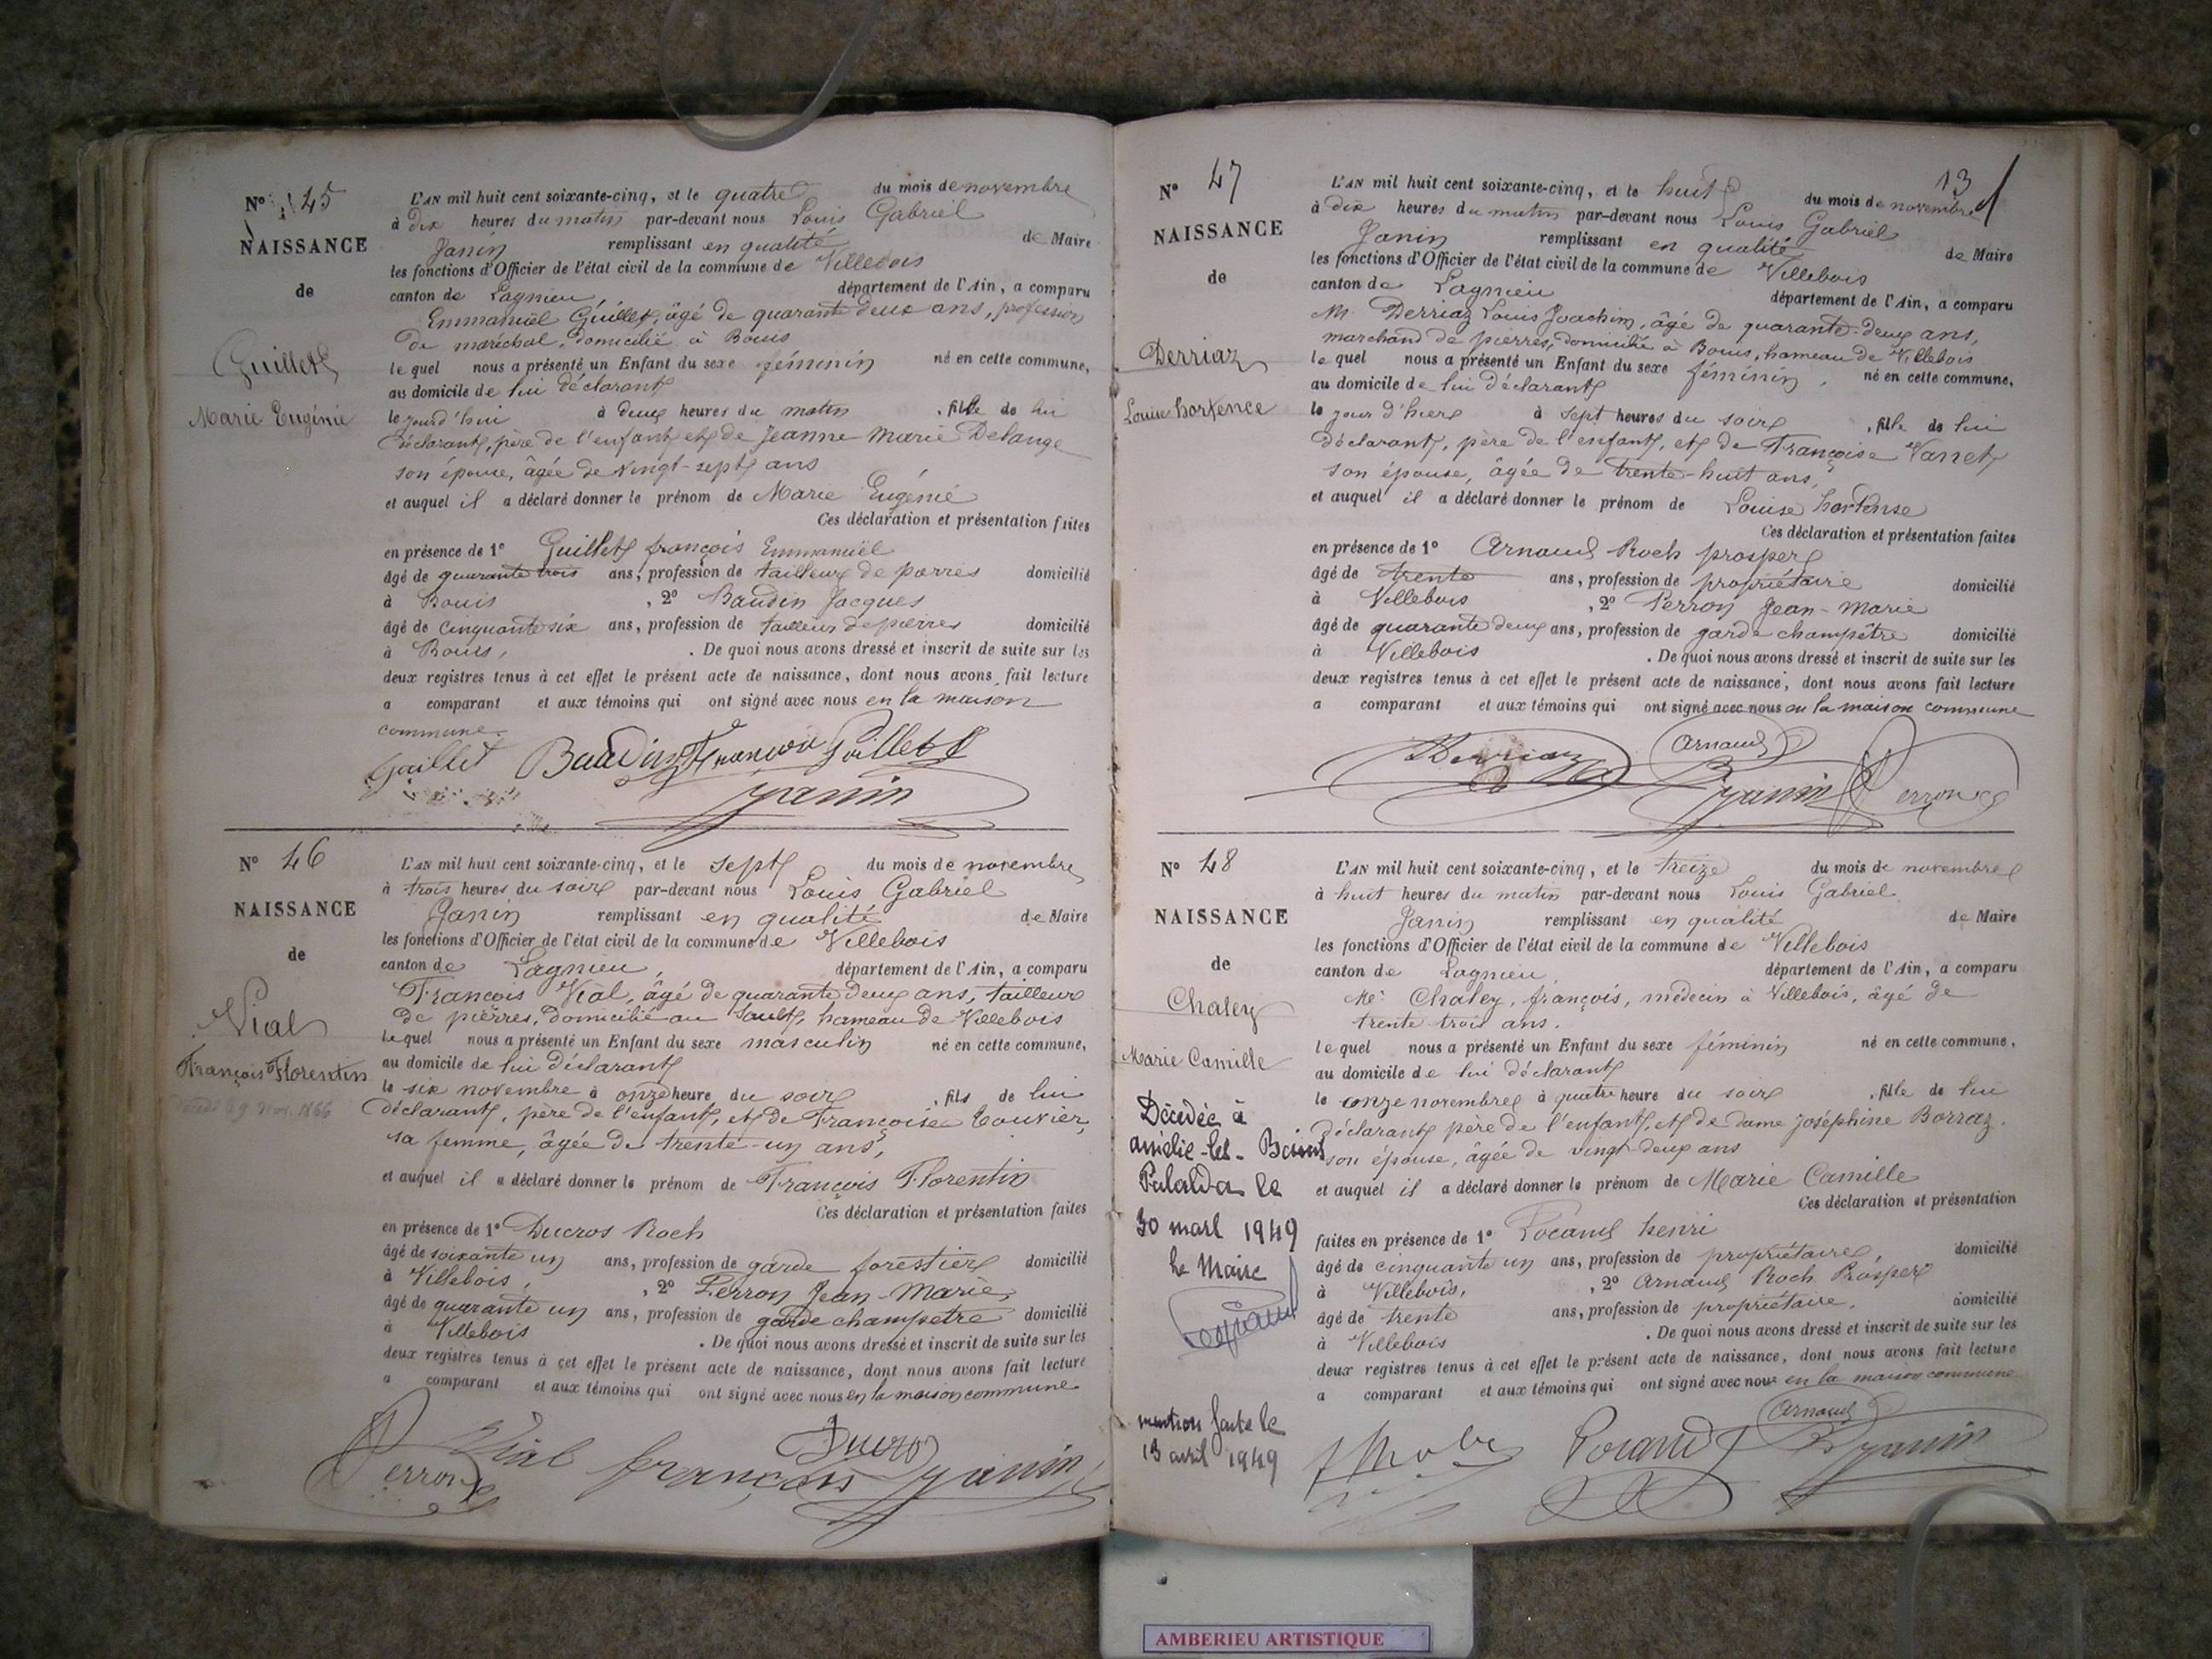 N° 45
NAISSANCE
de
Guillet
Marie Eugénie
L'AN mil huit cent soixante-cinq, et le quatre du mois de novembre
à dix heures du matin par-devant nous Louis Gabriel
Janin remplissant en qualité de Maire
les fonctions d'Officier de l'état civil de la commune de Villebois
canton de Lagnieu département de l'Ain, a comparu
Emmanuël Guillet, âgé de quarante deux ans, profession
de maréchal, domicilié à Bouis
lequel nous a présenté un Enfant du sexe féminin né en cette commune,
au domicile de lui déclarant
le jourd'hui à deux heures du matin, fille de lui
déclarant, père de l'enfant et de Jeanne Marie Delange
son épouse, âgée de vingt-sept ans
et auquel il a déclaré donner le prénom de Marie Eugénie
Ces déclaration et présentation faites
en présence de 1° Guillet françois Emmanuël
âgé de quarante trois ans, profession de tailleur de pierres domicilié
à Bouis, 2° Baudin Jacques
âgé de cinquante six ans, profession de tailleur de pierres domicilié
à Bouis, . De quoi nous avons dressé et inscrit de suite sur les
deux registres tenus à cet effet le présent acte de naissance, dont nous avons fait lecture
a comparant et aux témoins qui ont signé avec nous en la maison
commune.
Guillet Baudin François Guillet
Janin
N° 46
NAISSANCE
de
Vial
François Florentin
L'AN mil huit cent soixante-cinq, et le sept du mois de novembre
à trois heures du soir par-devant nous Louis Gabriel
Janin remplissant en qualité de Maire
les fonctions d'Officier de l'état civil de la commune de Villebois
canton de Lagnieu, département de l'Ain, a comparu
François Vial, âgé de quarante deux ans, tailleur
de pierres, domicilié au Sault, hameau de Villebois
lequel nous a présenté un Enfant du sexe masculin né en cette commune,
au domicile de lui déclarant
le six novembre à onze heure du soir, fils de lui
déclarant, père de l'enfant, et de Françoise Touvier,
sa femme, âgée de trente-un ans,
et auquel il a déclaré donner le prénom de François Florentin
Ces déclaration et présentation faites
en présence de 1° Ducros Roch
âgé de soixante un ans, profession de garde forestier domicilié
à Villebois, , 2° Perron Jean-Marie,
âgé de quarante un ans, profession de garde champêtre domicilié
à Villebois . De quoi nous avons dressé et inscrit de suite sur les
deux registres tenus à cet effet le présent acte de naissance, dont nous avons fait lecture
a comparant et aux témoins qui ont signé avec nous en la maison commune
Perron Vial françois Ducros Janin
13
N° 47
NAISSANCE
de
Derriaz
Louise hortence
L'AN mil huit cent soixante-cinq, et le huit du mois de novembre
à dix heures du matin par-devant nous Louis Gabriel
Janin remplissant en qualité de Maire
les fonctions d'Officier de l'état civil de la commune de Villebois
canton de Lagnieu département de l'Ain, a comparu
M. Derriaz Louis Joachim, âgé de quarante-deux ans,
marchand de pierres, domicilié à Bouis, hameau de Villebois
lequel nous a présenté un Enfant du sexe féminin, né en cette commune,
au domicile de lui déclarant
le jour d'hier à sept heures du soir, fille de lui
déclarant, père de l'enfant, et de Françoise Varret
son épouse, âgée de trente-huit ans,
et auquel il a déclaré donner le prénom de Louise hortense
Ces déclaration et présentation faites
en présence de 1° Arnaud Roch prosper
âgé de trente ans, profession de propriétaire domicilié
à Villebois , 2° Perron Jean-Marie
âgé de quarante deux ans, profession de garde champêtre domicilié
à Villebois . De quoi nous avons dressé et inscrit de suite sur les
deux registres tenus à cet effet le présent acte de naissance, dont nous avons fait lecture
a comparant et aux témoins qui ont signé avec nous en la maison commune
Derriaz Arnaud Janin Perron
N° 48
NAISSANCE
de
Chaley
Marie Camille
Décédée à
amélie-les-Bains
Palalda le
30 mars 1949
le Maire
mention faite le
13 avril 1949
L'AN mil huit cent soixante-cinq, et le treize du mois de novembre
à huit heures du matin par-devant nous Louis Gabriel
Janin remplissant en qualité de Maire
les fonctions d'Officier de l'état civil de la commune de Villebois
canton de Lagnieu département de l'Ain, a comparu
Mr. Chaley, françois, médecin à Villebois, âgé de
trente trois ans.
lequel nous a présenté un Enfant du sexe féminin né en cette commune,
au domicile de lui déclarant
le onze novembre à quatre heure du soir, fille de lui
déclarant père de l'enfant, et de dame Joséphine Borraz.
son épouse, âgée de vingt-deux ans
et auquel il a déclaré donner le prénom de Marie Camille
Ces déclaration et présentation
faites en présence de 1° Pocand henri
âgé de cinquante un ans, profession de propriétaire, domicilié
à Villebois, , 2° Arnaud Roch Prosper
âgé de trente ans, profession de propriétaire, domicilié
à Villebois . De quoi nous avons dressé et inscrit de suite sur les
deux registres tenus à cet effet le présent acte de naissance, dont nous avons fait lecture
a comparant et aux témoins qui ont signé avec nous en la maison commune
Pocand Arnaud Janin
AMBERIEU ARTISTIQUE